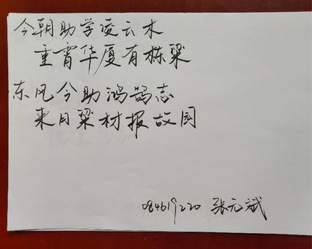 今朝助学凌云木
重霄华厦有栋梁
东风今助鸿鹄志
来日梁材报故园
084619220 张元斌